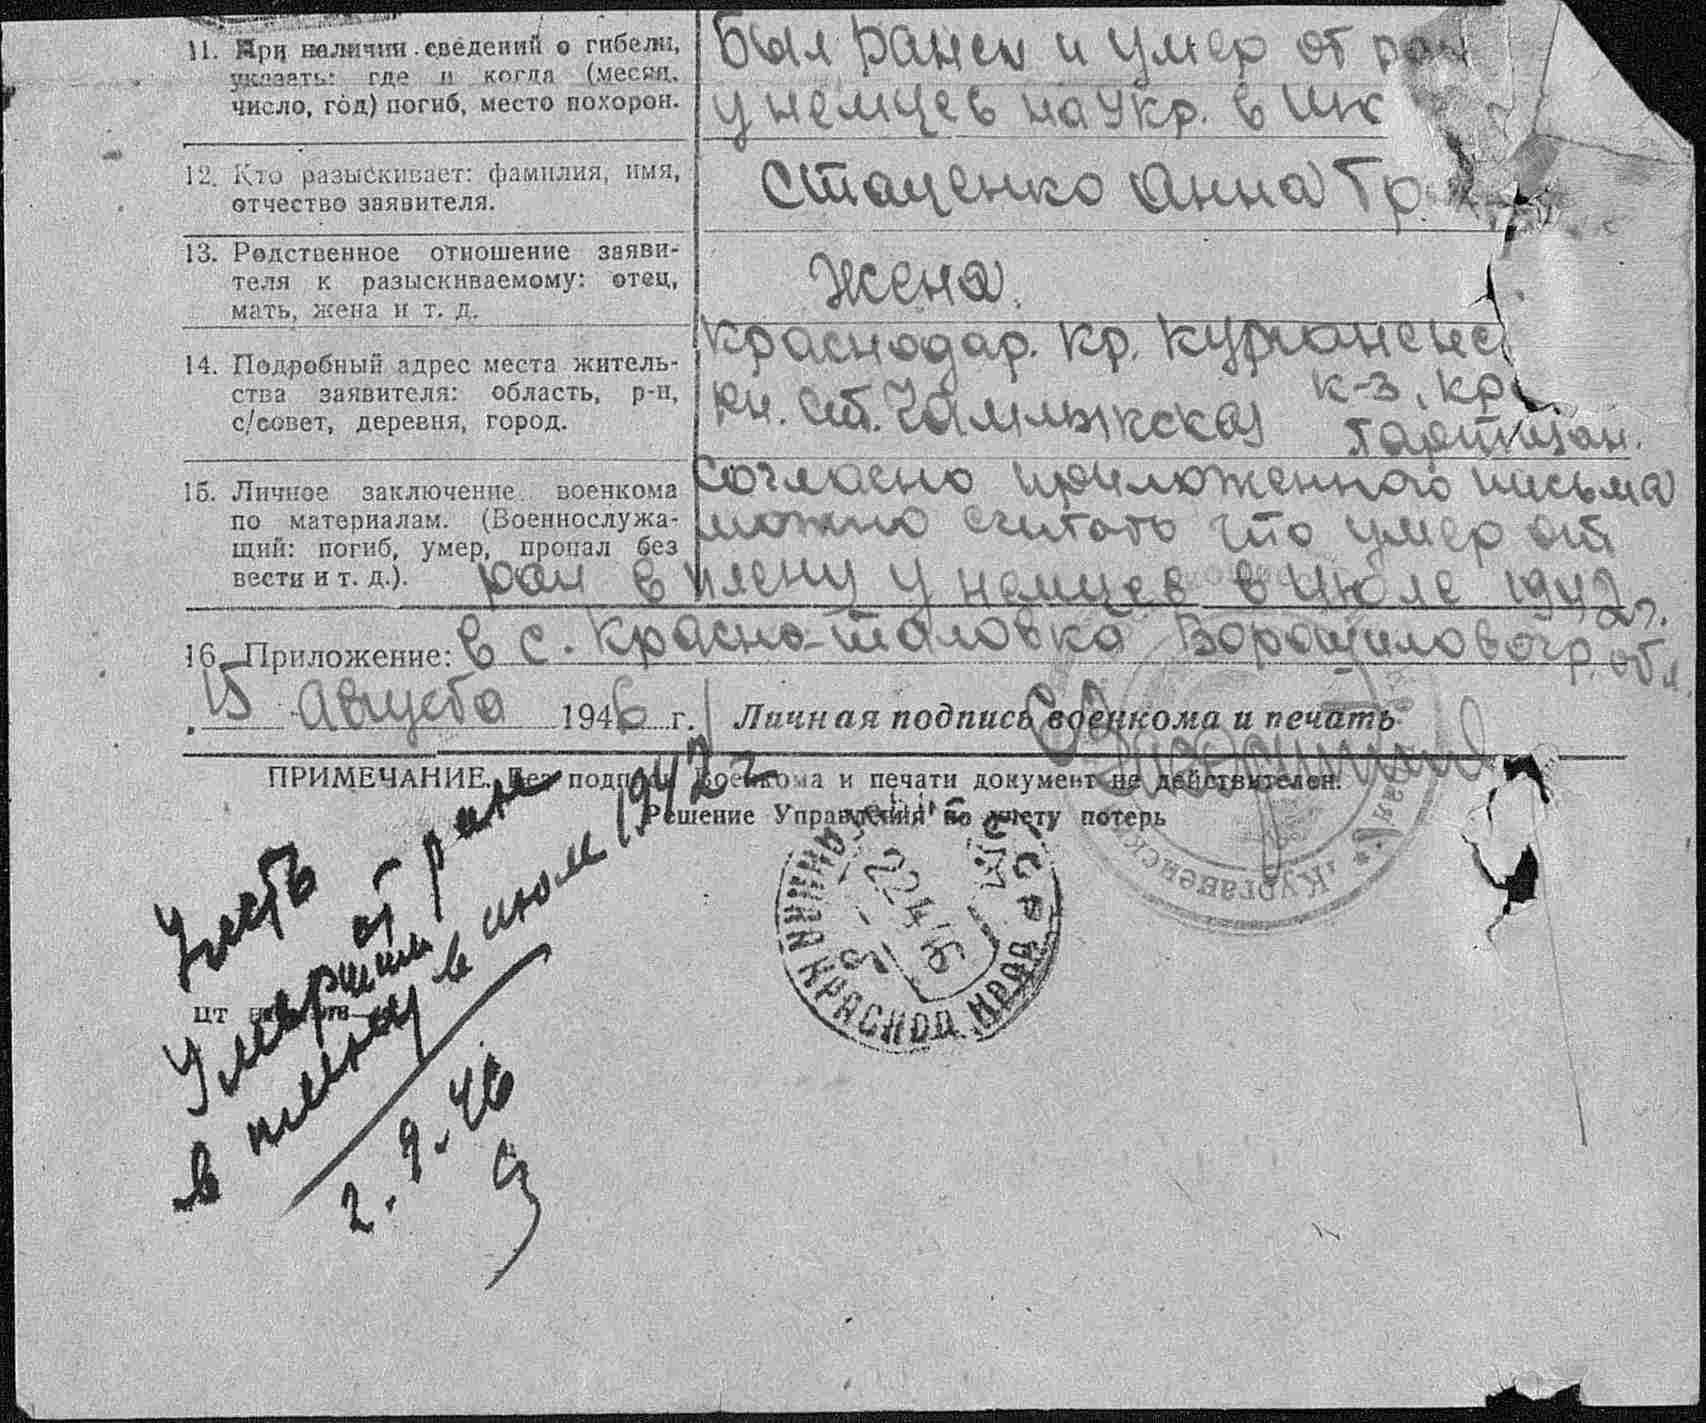 11. При наличии сведений о гибели,
указать: где и когда (месяц,
число, год) погиб, место похорон.
Был ранен и умер от ран
у немцев на Укр. в ию
12. Кто разыскивает: фамилия, имя,
отчество заявителя.
Стаценко Анна Гр.
13. Родственное отношение заяви-
теля к разыскиваемому: отец,
мать, жена и т. д.
Жена.
14. Подробный адрес места житель-
ства заявителя: область, р-н,
с/совет, деревня, город.
Краснодар. кр. Курганенс
рн. ст. Чамлыкская к-з, кр
партизан.
15. Личное заключение военкома
по материалам. (Военнослужа-
щий: погиб, умер, пропал без
вести и т. д.).
Согласно приложенного письма
можно считать что умер от
ран в плену у немцев в июле 1942 г.
16. Приложение: в с. Красно-таловка Ворошиловогр. обл.
15 Августа 1946 г. Личная подпись военкома и печать
ПРИМЕЧАНИЕ. Без подписи военкома и печати документ не действителен.
Решение Управления по учету потерь
Учесть
умершим от ран
в плену в июле 1942 г
2.9.46
КРАСНОД КРАЯ
СССР
22 4 46
Курганенск